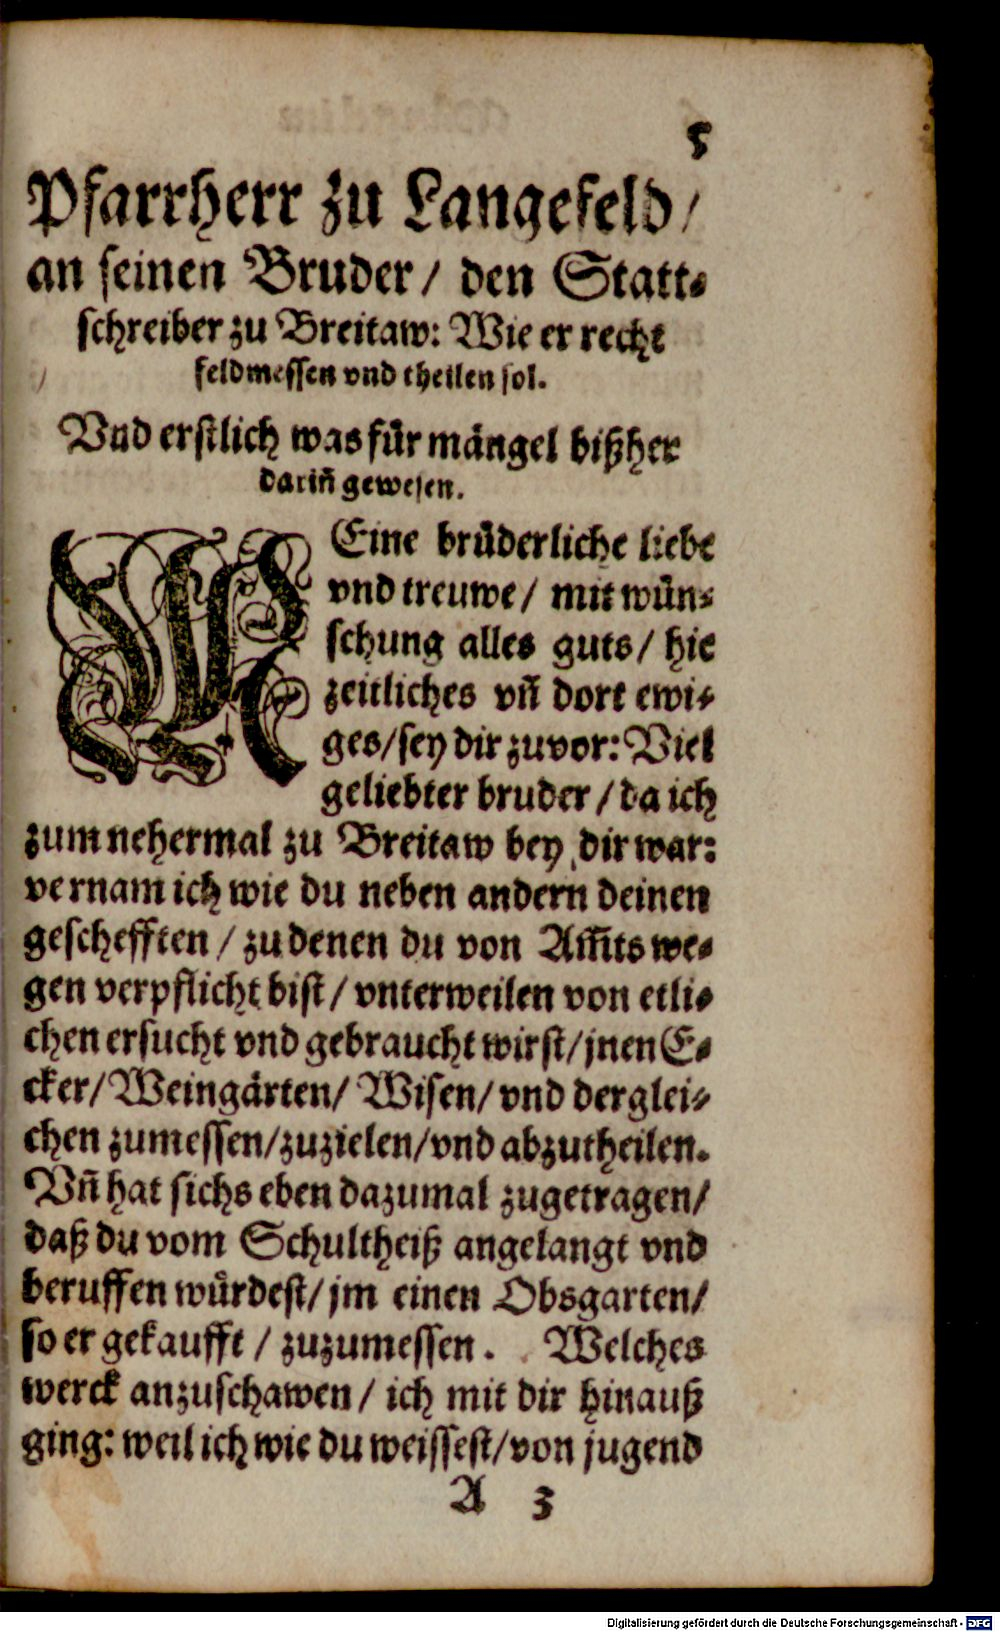 5
Pfarrherr zu Langefeld/
an seinen Bruder/ den Statt-
schreiber zu Breitaw: Wie er recht
feldmessen vnd theilen sol.
Vnd erstlich was für mängel bißher
dariñ gewesen.
MEine brüderliche liebe
vnd treuwe/ mit wün-
schung alles guts/ hie
zeitliches vñ dort ewi-
ges/ sey dir zuvor: Viel
geliebter bruder/ da ich
zum nehermal zu Breitaw bey dir war:
vernam ich wie du neben andern deinen
geschefften/ zu denen du von Am̃ts we-
gen verpflicht bist/ vnterweilen von etli-
chen ersucht vnd gebraucht wirst/ jnen E-
cker/ Weingärten/ Wisen/ vnd derglei-
chen zumessen/ zuzielen/ vnd abzutheilen.
Vñ hat sichs eben dazumal zugetragen/
daß du vom Schultheiß angelangt vnd
beruffen würdest/ jm einen Obsgarten/
so er gekaufft/ zuzumessen. Welches
werck anzuschawen/ ich mit dir hinauß
ging: weil ich wie du weissest/ von jugend
A 3
Digitalisierung gefördert durch die Deutsche Forschungsgemeinschaft - DFG